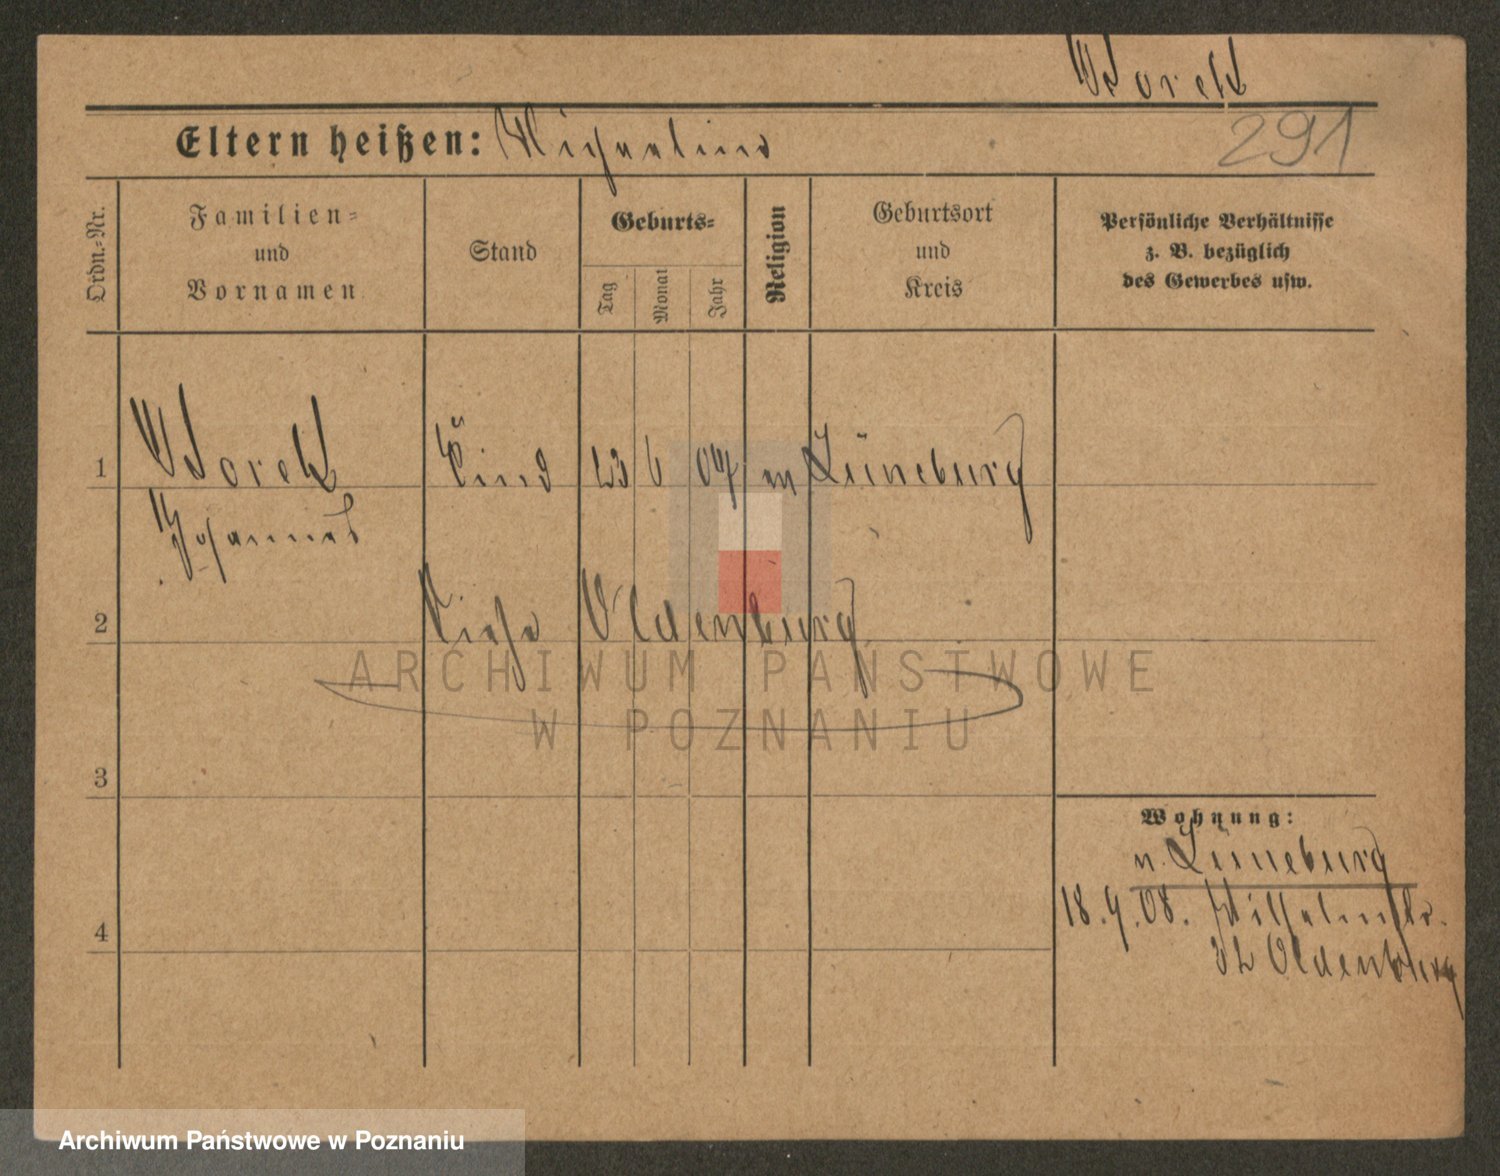 Worek
291
Eltern heißen: Michaelina
Ordn.-Nr.
Familien-
und
Vornamen
Stand
Geburts-
Tag
Monat
Jahr
Religion
Geburtsort
und
Kreis
Persönliche Verhältnisse
z. B. bezüglich
des Gewerbes usw.
1
Worek
Kind
23
6
07
Lüneburg
Johannes
2
Siehe Oldenburg
3
4
Wohnung:
n. Lüneburg
18.9.08. Wilhelmstr.
32 Oldenburg
ARCHIWUM PAŃSTWOWE
W POZNANIU
Archiwum Państwowe w Poznaniu